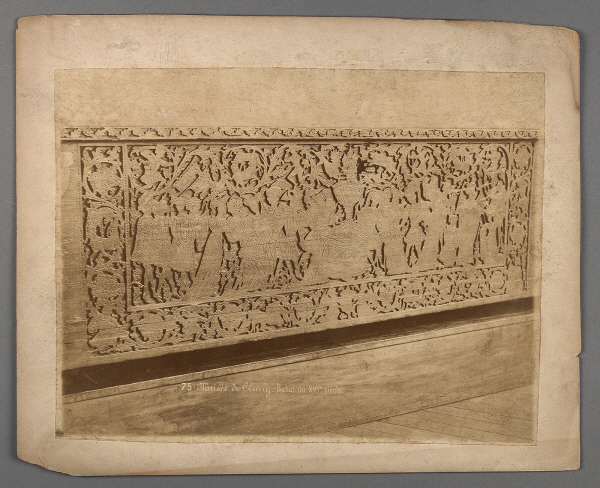 75 Musée de Cluny - Bahut du XVIe siècle